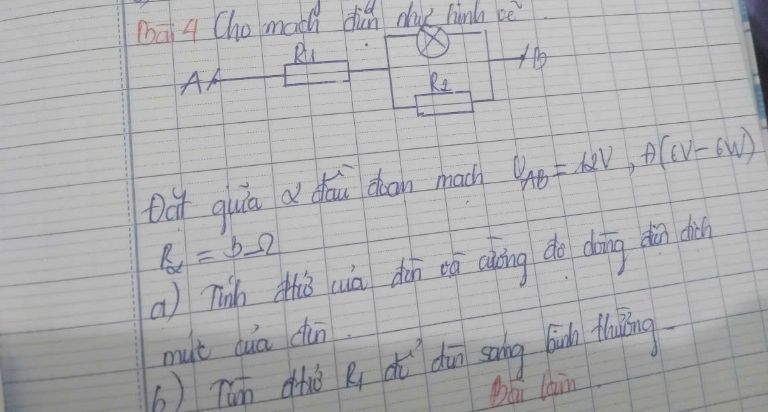 Bài 4 Cho mạch điện như hình vẽ.
R1
A
B
R2
Đặt giữa 2 đầu đoạn mạch UAB = 12V, Đ(6V - 6W)
R2 = 3Ω
a) Tính đtrở của đèn và cường độ dòng điện định
mức của đèn.
b) Tìm đtrở R1 để đèn sáng bình thường
Bài làm